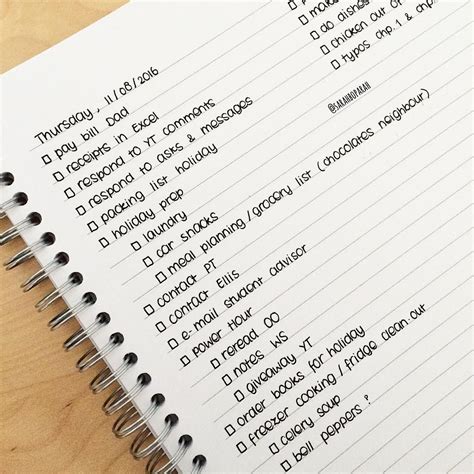 Thursday, 11/08/2016
□ pay bill Dad
□ receipts in Excel
□ respond to YT comments
□ respond to asks & messages
□ packing list holiday
□ holiday prep
□ laundry
□ car snacks
□ meal planning / grocery list (chocolates neighbour)
□ contact PT
□ contact Ellis
□ e-mail student advisor
□ power hour
□ reread OO
□ notes WS
□ giveaway YT
□ order books for holiday
□ freezer cooking / fridge clean-out
□ celery soup
□ bell peppers?
□ make
□ do dishes
□ chicken out of
□ typos chp. 1 & chp.